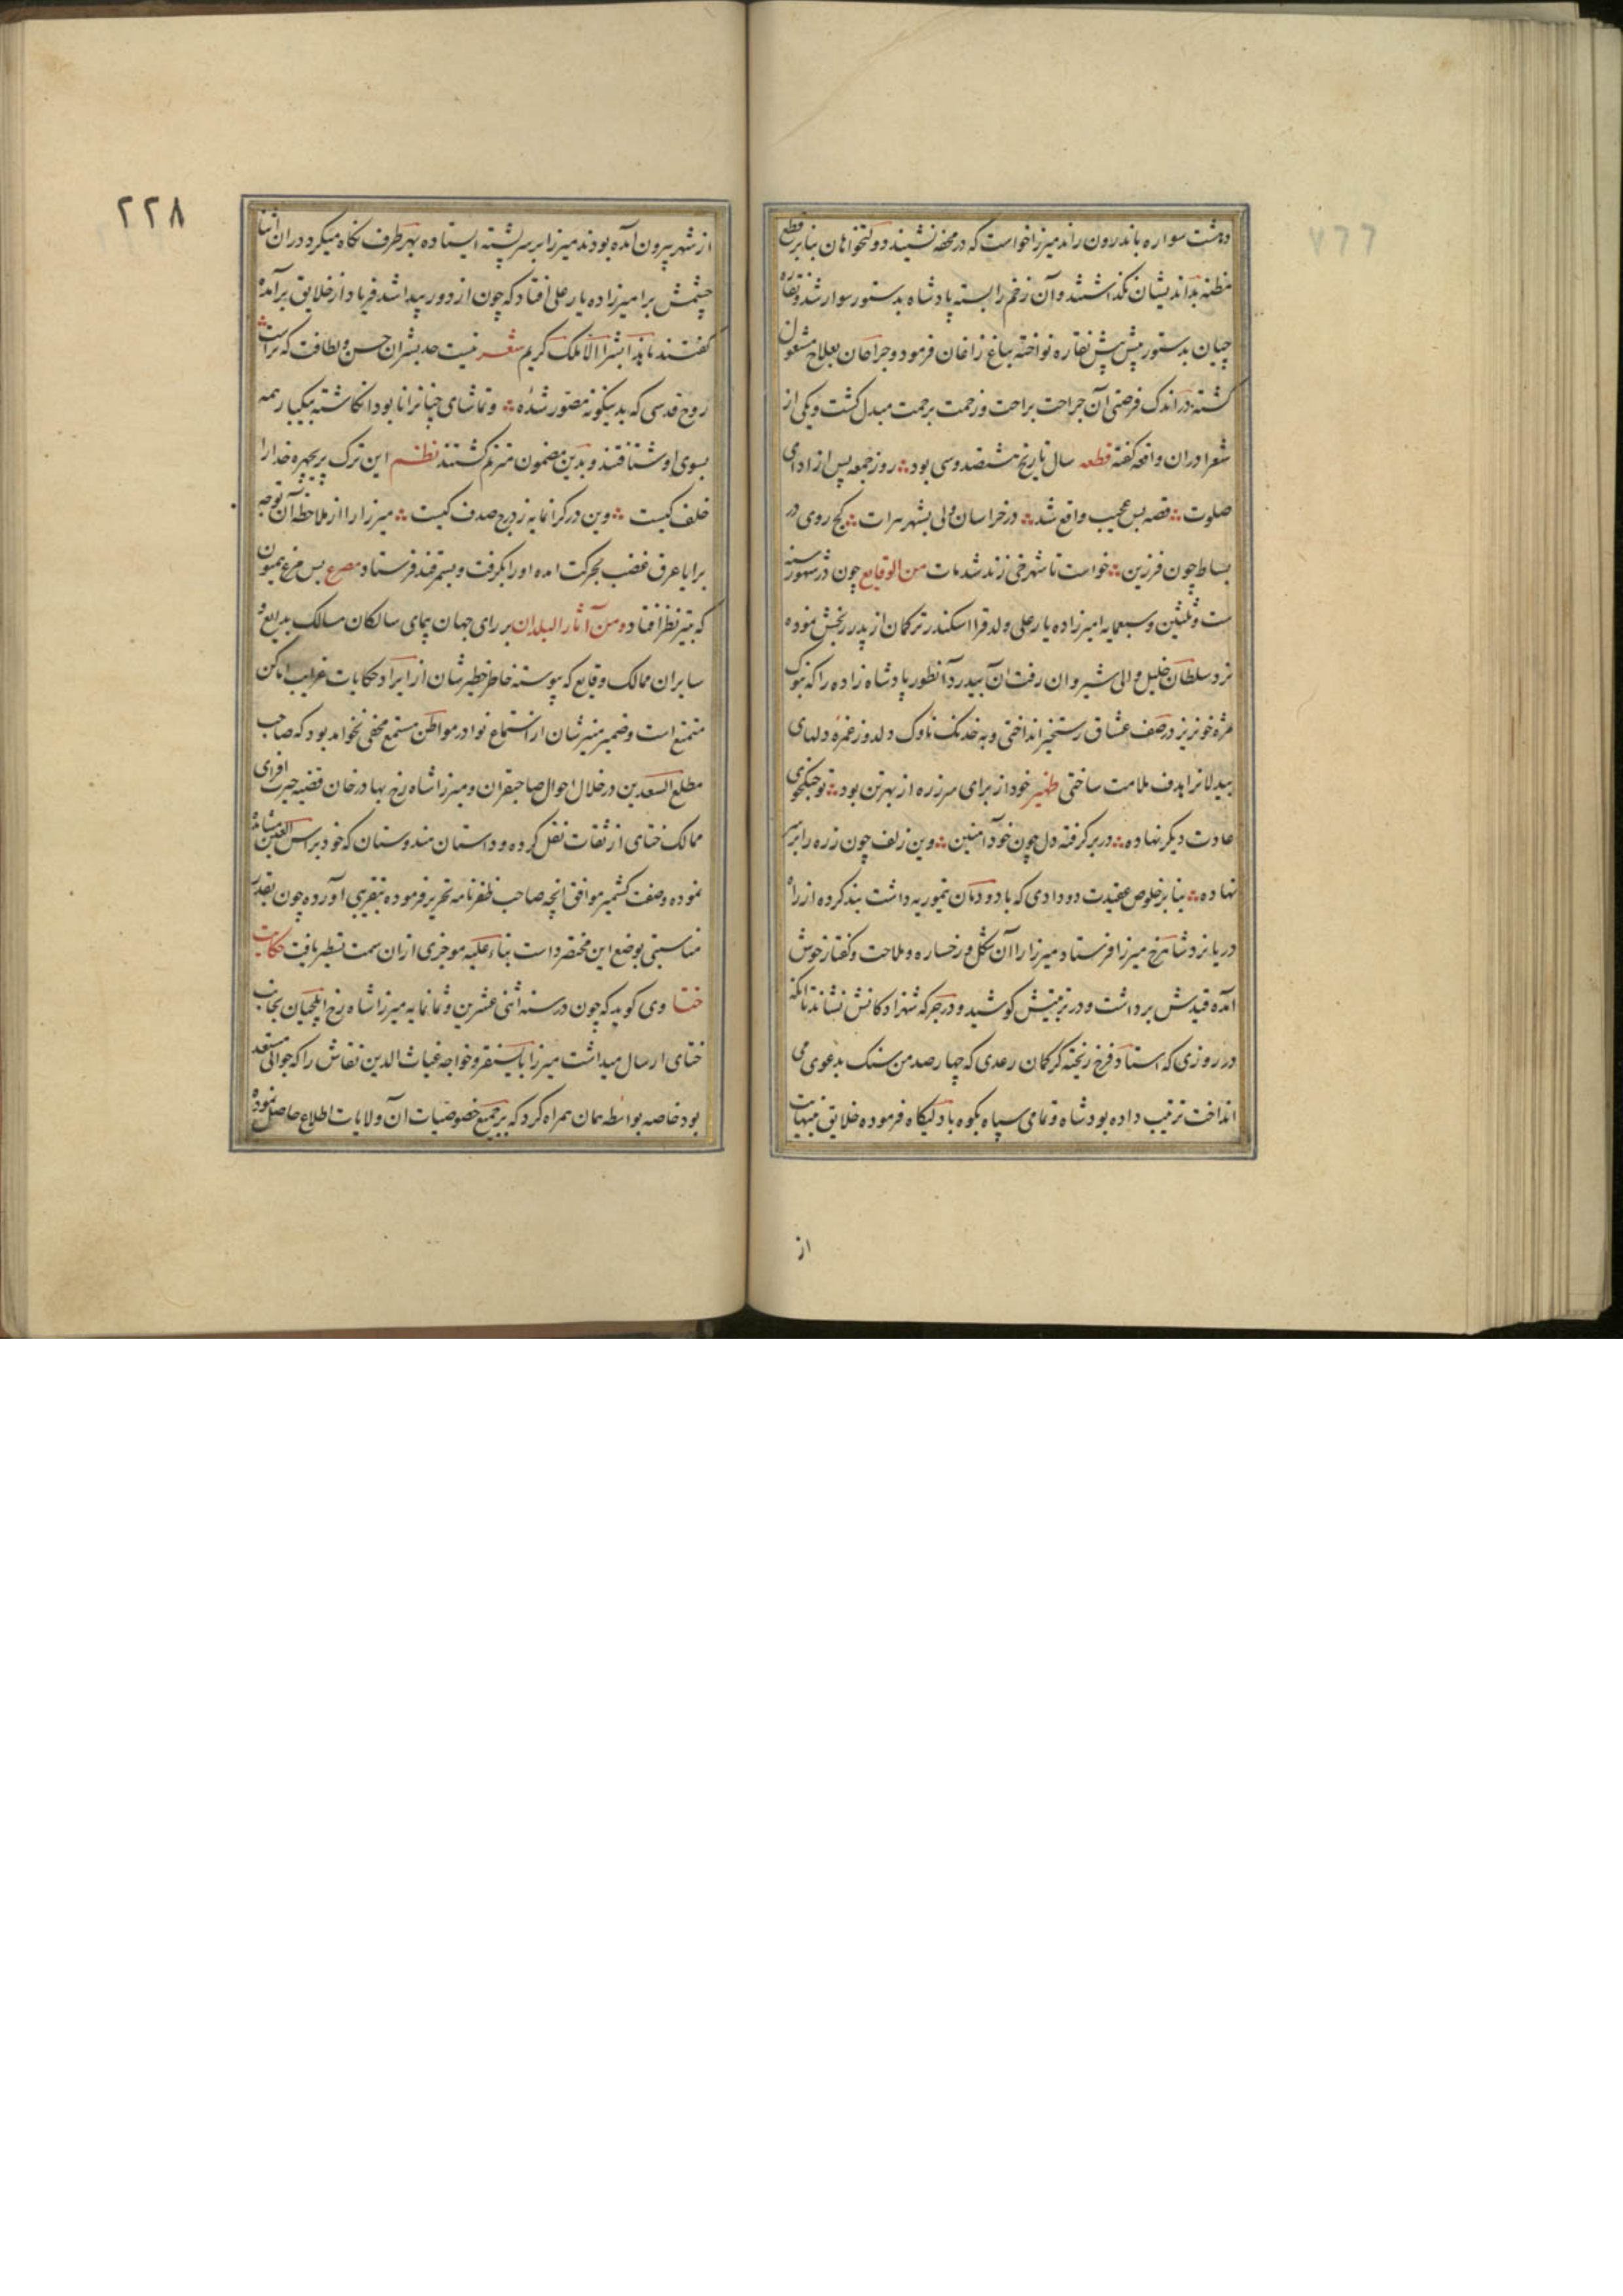 دهشت سواره باندرون راند میرزا خواست که در محفه نشیند دولتخواهان بنابر قطع
مظنه بداندیشان نگذاشتند و آن زخم را بسته پادشاه بدستور سوار شد و نقاره
چیان بدستور پیش پیش نقاره نواخته بباغ زاغان فرمود و جراحان بعلاج مشغول
کشته در اندک فرصتی آن جراحت براحت و زحمت برحمت مبدل کشت و یکی از
شعرا در ان واقعه کفته قطعه سال تاریخ هشتصد و سی بود روز جمعه پس از ادای
صلوت قصه بس عجیب واقع شد در خراسان ولی بشهر هرات کج روی در
بساط چون فرزین خواست تا شهرخی زند شد مات من الوقایع چون در شهور سنه
ست و ثلثین و سبعمایه امیرزاده یارعلی ولد قرا اسکندر ترکمان از پدر رنجش نموده
نزد سلطان خلیل والی شیروان رفت آن بیدرد آنطور پادشاه زاده را که بنوک
مژه خونریز در صف عشاق رستخیز انداختی و به خدنک ناوک دلدوز غمزه دلهای
بیدلانرا هدف ملامت ساختی ظهیر خود از برای سر زره از بهر تن بود تو جنکجوی
عادت دیکر نهاده در بر کرفته دل چون خود آهنین وین زلف چون زره را بر سر
نهاده بنابر خلوص عقیدت و ودادی که با دودمان تیموریه داشت بند کرده از راه
دریا نزد شاهرخ میرزا فرستاد میرزا را آن شکل و رخساره و ملاحت و کفتار خوش
آمده قیدش برداشت و در تربیتش کوشید و در جرکه شهزادکانش نشاند تا آنکه
در روزی که استاد فرخ ریخته کر کمان رعدی که چهارصد من سنک بدعوی می
انداخت ترتیب داده بود شاه و تمامی سپاه بکوه بادلیکاه فرموده خلایق بنهایت
از
۲۲۸
از شهر بیرون آمده بودند میرزا بر سر پشته ایستاده بهر طرف نکاه میکرد در ان اثنا
چشمش بر امیرزاده یارعلی افتاد که چون از دور پیدا شد فریاد از خلایق برآمده
کفتند ما هذا بشرا الا ملک کریم شعر نیست حد بشر ان حسن و لطافت که تراست
روح قدسی که بدینکونه مصور شده و تماشای چنانرا نابود انکاشته بیکبار همه
بسوی او شتافتند و بدین مضمون مترنم کشتند نظم این ترک پریچهره خدا را
خلف کیست وین در کرانمایه ز درج صدف کیست میرزا را از ملاحظه آن توجه
برایا عرق غضب بحرکت امده او را بکرفت و بسمرقند فرستاد مصرع بس مرغ همیون
که بتیر نظر افتاد و من آثار البلدان بر رای جهان پیمای سالکان مسالک بدایع و
سایران ممالک وقایع که پیوسته خاطر خطیرشان از ایراد حکایات غرایب اماکن
متمتع است و ضمیر منیرشان از استماع نوادر مواطن مستمتع مخفی نخواهد بود که صاحب
مطلع السعدین در خلال احوال صاحبقران و میرزا شاه رخ بهادر خان قضیه حیرت افزای
ممالک ختای از ثقات نقل کرده و داستان هندوستان که خود براس العین مشاهده
نموده وصفت کشمیر موافق آنچه صاحب ظفرنامه تحریر فرموده بتقریبی آورده چون بقلیب
مناسبتی بوضع این مختصر داشت بناء علیه موجزی از ان سمت تسطیر یافت حکایت
ختا وی کوید که چون در سنه اثنی عشرین و ثمانمایه میرزا شاه رخ ایلچیان بجانب
ختای ارسال میداشت میرزا بایسنقر و خواجه غیاث الدین نقاش را که جوانی مستعد
بود خاصه بواسطه همان همراه کرد که بر جمیع خصوصیات آن ولایات اطلاع حاصل نموده